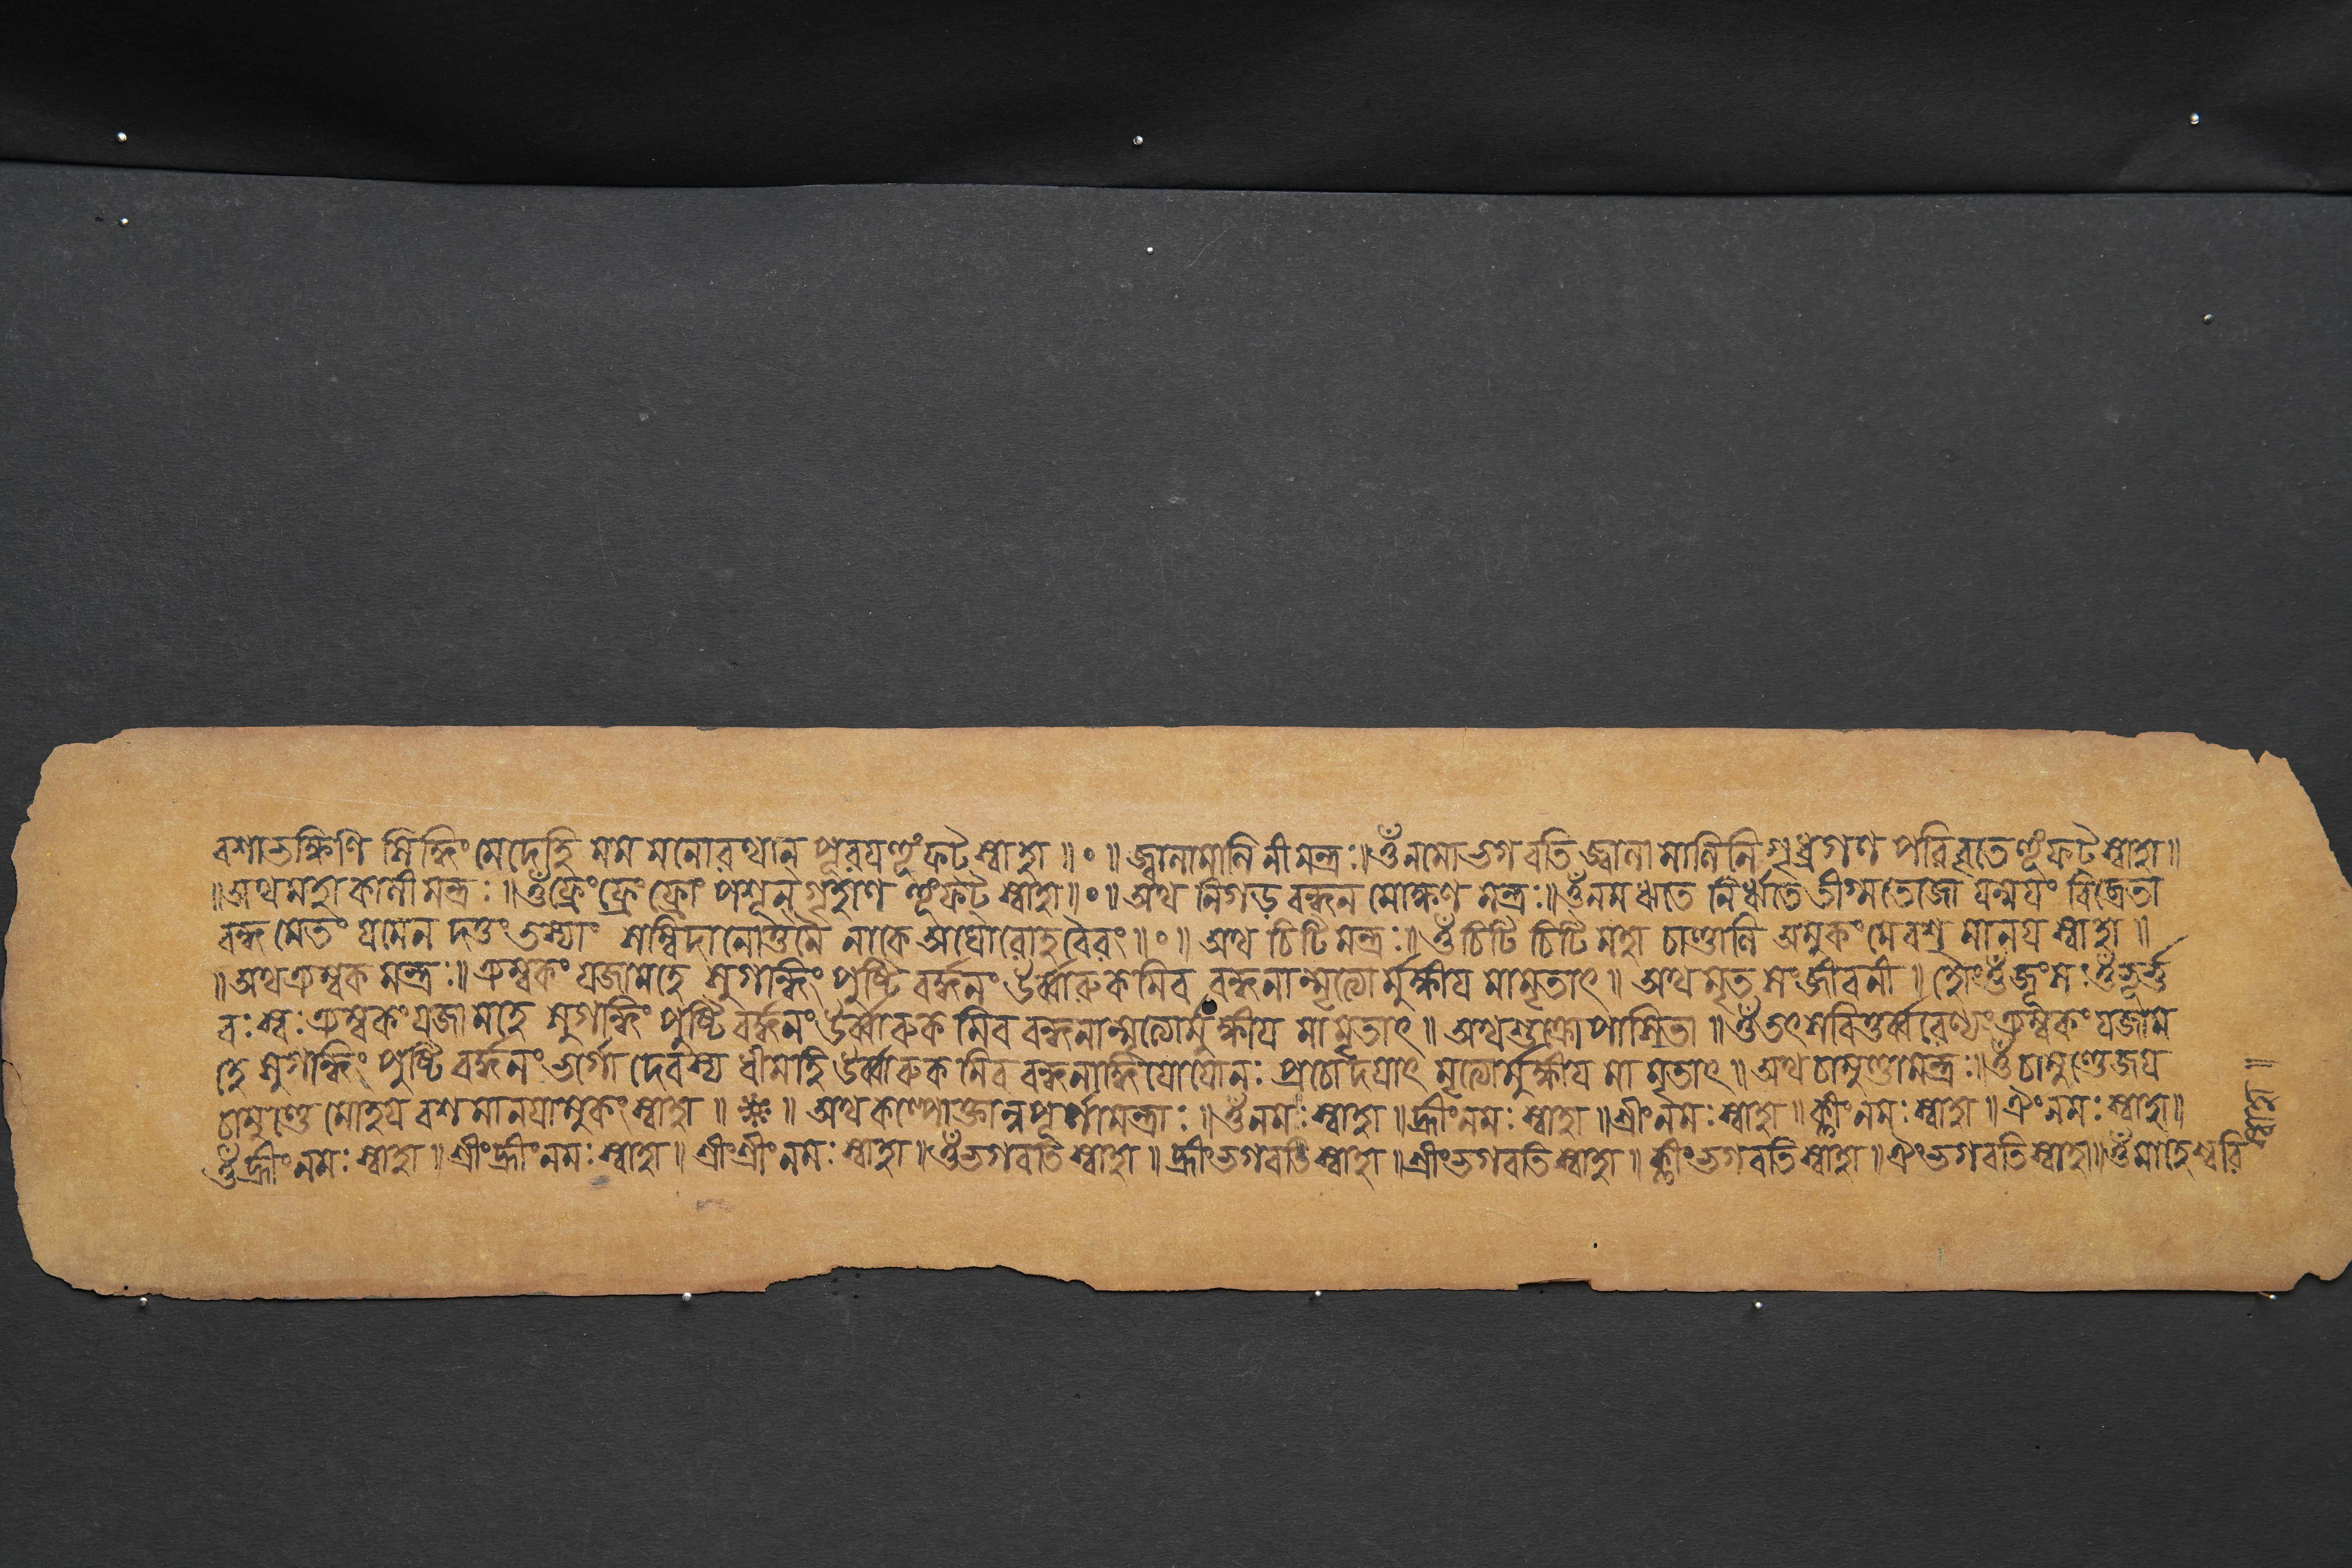 বশাভক্ষিণি সিদ্ধিং মেদেহি মম মনোরথান পূরয়হূংফটস্বাহা ॥ ॰ ॥ জ্বালামালিনীমন্ত্রঃ॥ওঁনমোভগবতি জ্বালামালিনি গৃধ্রগণ পরিবৃতেহূংফটস্বাহা॥
॥অথমহাকালীমন্ত্রঃ॥ওঁফ্রেংফ্রেংফ্রোং পশূনগৃহাণ হূংফট স্বাহা॥॰॥ অথ নিগড়বন্ধন মোক্ষণ মন্ত্রঃ॥ওঁনমঋতে নির্ঋতে তীগ্মতেজো যন্ময়ং বিব্রেতা
বন্ধমেতং যমেন দত্তং তস্যাং সম্বিদানোত্তমে নাকে অঘোরোহবৈরং॥॰॥ অথ চিটিমন্ত্রঃ॥ওঁচিটি চিটিমহা চাণ্ডালি অমুকংমেবশ মানয় স্বাহা ॥
॥অথত্র্যম্বক মন্ত্রঃ॥ ত্র্যম্বকং যজামহে সুগন্ধিং পুষ্টি বর্দ্ধনং উর্ব্বারুকমিব বন্ধনান্মৃত্যোর্মুক্ষীয় মামৃতাৎ॥ অথ মৃতসংজীবনী ॥ হৌংওঁজূংসঃওঁভূর্ভু
বঃস্বঃত্র্যম্বকংযজামহে সুগন্ধিং পুষ্টি বর্দ্ধনংউর্ব্বারুক মিব বন্ধনান্মৃত্যোর্মুক্ষীয় মামৃতাৎ॥ অথশুক্রোপাসিতা ॥ওঁতৎসবিতুর্ব্বরেণ্যংত্র্যম্বকংযজাম
হে সুগন্ধিং পুষ্টি বর্দ্ধনং ভর্গো দেবস্য ধীমহি উর্ব্বারুক মিব বন্ধনাদ্ধিয়োয়োনঃ প্রচোদয়াৎ মৃত্যোর্মুক্ষীয় মা মৃতাৎ॥ অথ চামুণ্ডামন্ত্রঃ॥ওঁচামুণ্ডেজয়
চামুণ্ডে মোহয় বশমানয়ামুকং স্বাহা ॥ ॥ অথ কল্পোক্তান্নপূর্ণামন্ত্রাঃ ॥ওঁনমঃস্বাহা ॥হ্রীংনমঃস্বাহা ॥শ্রীংনমঃস্বাহা॥ক্লীংনমঃস্বাহা॥ঐংনমঃস্বাহা॥
ওঁহ্রীংনমঃস্বাহা॥শ্রীংহ্রীংনমঃস্বাহা॥শ্রীংশ্রীংনমঃস্বাহা॥ওঁভগবতিস্বাহা॥হ্রীংভগবতিস্বাহা॥শ্রীংভগবতিস্বাহা॥ক্লীংভগবতিস্বাহা॥ঐংভগবতিস্বাহা॥ওঁমাহেশ্বরি